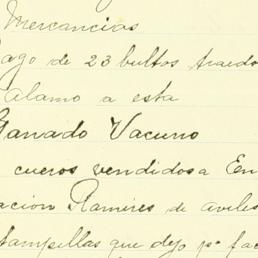 Mercancias
Pago de 23 bultos traido
Alamo a esta
Ganado Vacuno
cueros vendidos a En
acion Ramires de aviles
tampillas que dejo pª fac